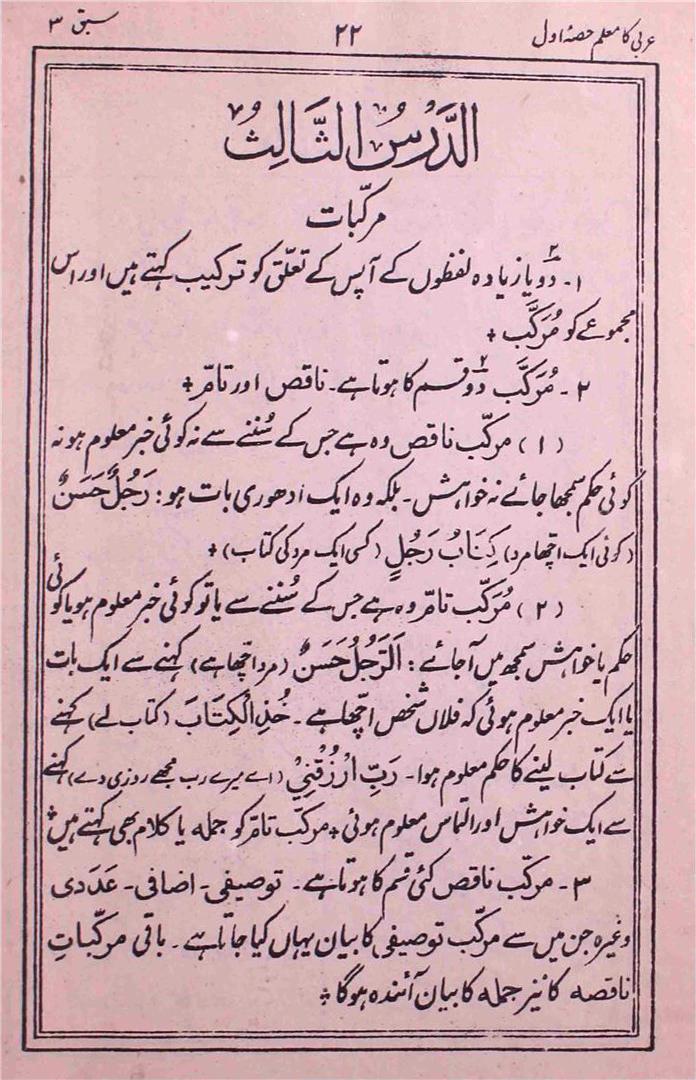 عربی کا معلم حصۂ اول ۲۲ سبق ۳
الدَّرْسُ الثَّالِثُ
مرکّبات
۱۔ دو۲ یا زیادہ لفظوں کے آپس کے تعلّق کو ترکیب کہتے ہیں اور اس
مجموعے کو مُرَکَّب +
۲۔ مُرَکَّب دو۲ قسم کا ہوتا ہے۔ ناقص اور تامّ +
(۱) مرکّب ناقص وہ ہے جس کے سُننے سے نہ کوئی خبر معلوم ہو نہ
کوئی حکم سمجھا جائے نہ خواہش۔ بلکہ وہ ایک ادھوری بات ہو: رَجُلٌ حَسَنٌ
(کوئی ایک اچھا مرد) کِتَابُ رَجُلٍ (کسی ایک مرد کی کتاب) +
(۲) مُرَکّب تامّ وہ ہے جس کے سُننے سے یا تو کوئی خبر معلوم ہو یا کوئی
حکم یا خواہش سمجھ میں آجائے: اَلرَّجُلُ حَسَنٌ (مرد اچھا ہے) کہنے سے ایک بات
یا ایک خبر معلوم ہوئی کہ فلاں شخص اچھا ہے۔ خُذِ الْکِتَابَ (کتاب لے) کہنے
سے کتاب لینے کا حکم معلوم ہوا۔ رَبِّ ارْزُقْنِیْ (اے میرے رب مجھے روزی دے) کہنے
سے ایک خواہش اور التماس معلوم ہوئی + مرکّب تامّ کو جملہ یا کلام بھی کہتے ہیں +
۳۔ مرکّب ناقص کئی قسم کا ہوتا ہے۔ توصیفی۔ اضافی۔ عَدَدی
وغیرہ جن میں سے مرکّب توصیفی کا بیان یہاں کیا جاتا ہے۔ باقی مرکّباتِ
ناقصہ کا نیز جملہ کا بیان آئندہ ہوگا +